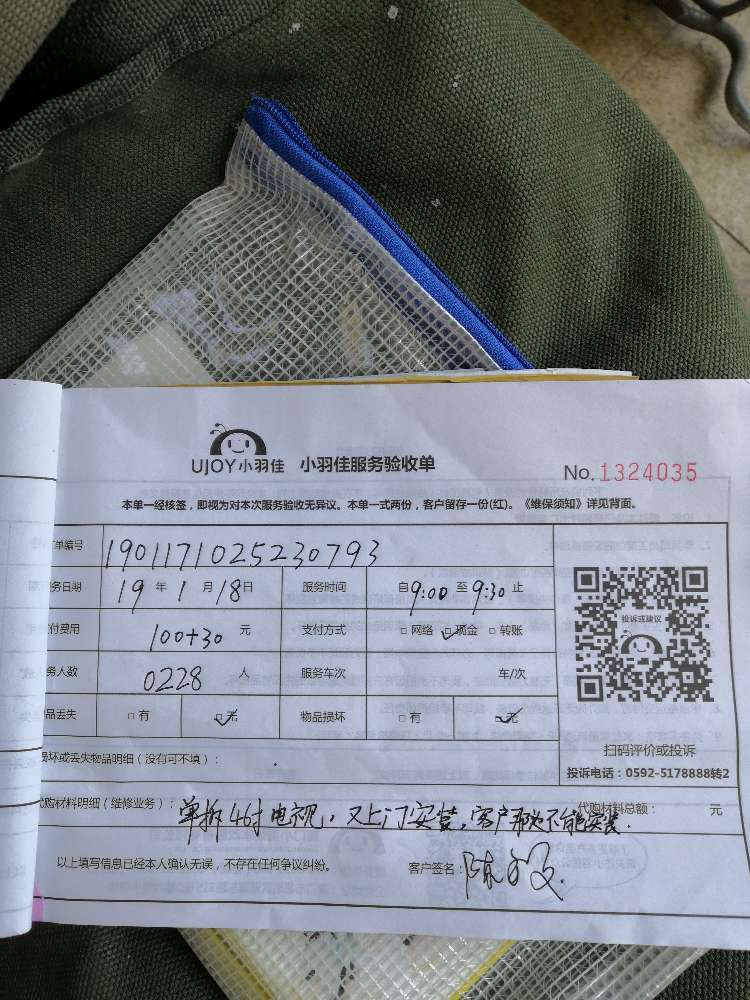 UJOY小羽佳 小羽佳服务验收单
No. 1324035
本单一经核签，即视为对本次服务验收无异议。本单一式两份，客户留存一份(红)。《维保须知》详见背面。
单编号 1901171025230793
务日期 19 年 1 月 18 日 服务时间 自 9:00 至 9:30 止
付费用 100+30 元 支付方式 □ 网络 □ 现金 □ 转账
务人数 0228 人 服务车次 车/次
品丢失 □ 有 □ 无 物品损坏 □ 有 □ 无
投诉或建议
扫码评价或投诉
投诉电话：0592-5178888转2
损坏或丢失物品明细（没有可不填）：
代购材料明细（维修业务）： 单拆46寸电视，又上门安装，客户那次不能安装. 代购材料总额： 元
以上填写信息已经本人确认无误，不存在任何争议纠纷。 客户签名： 陈